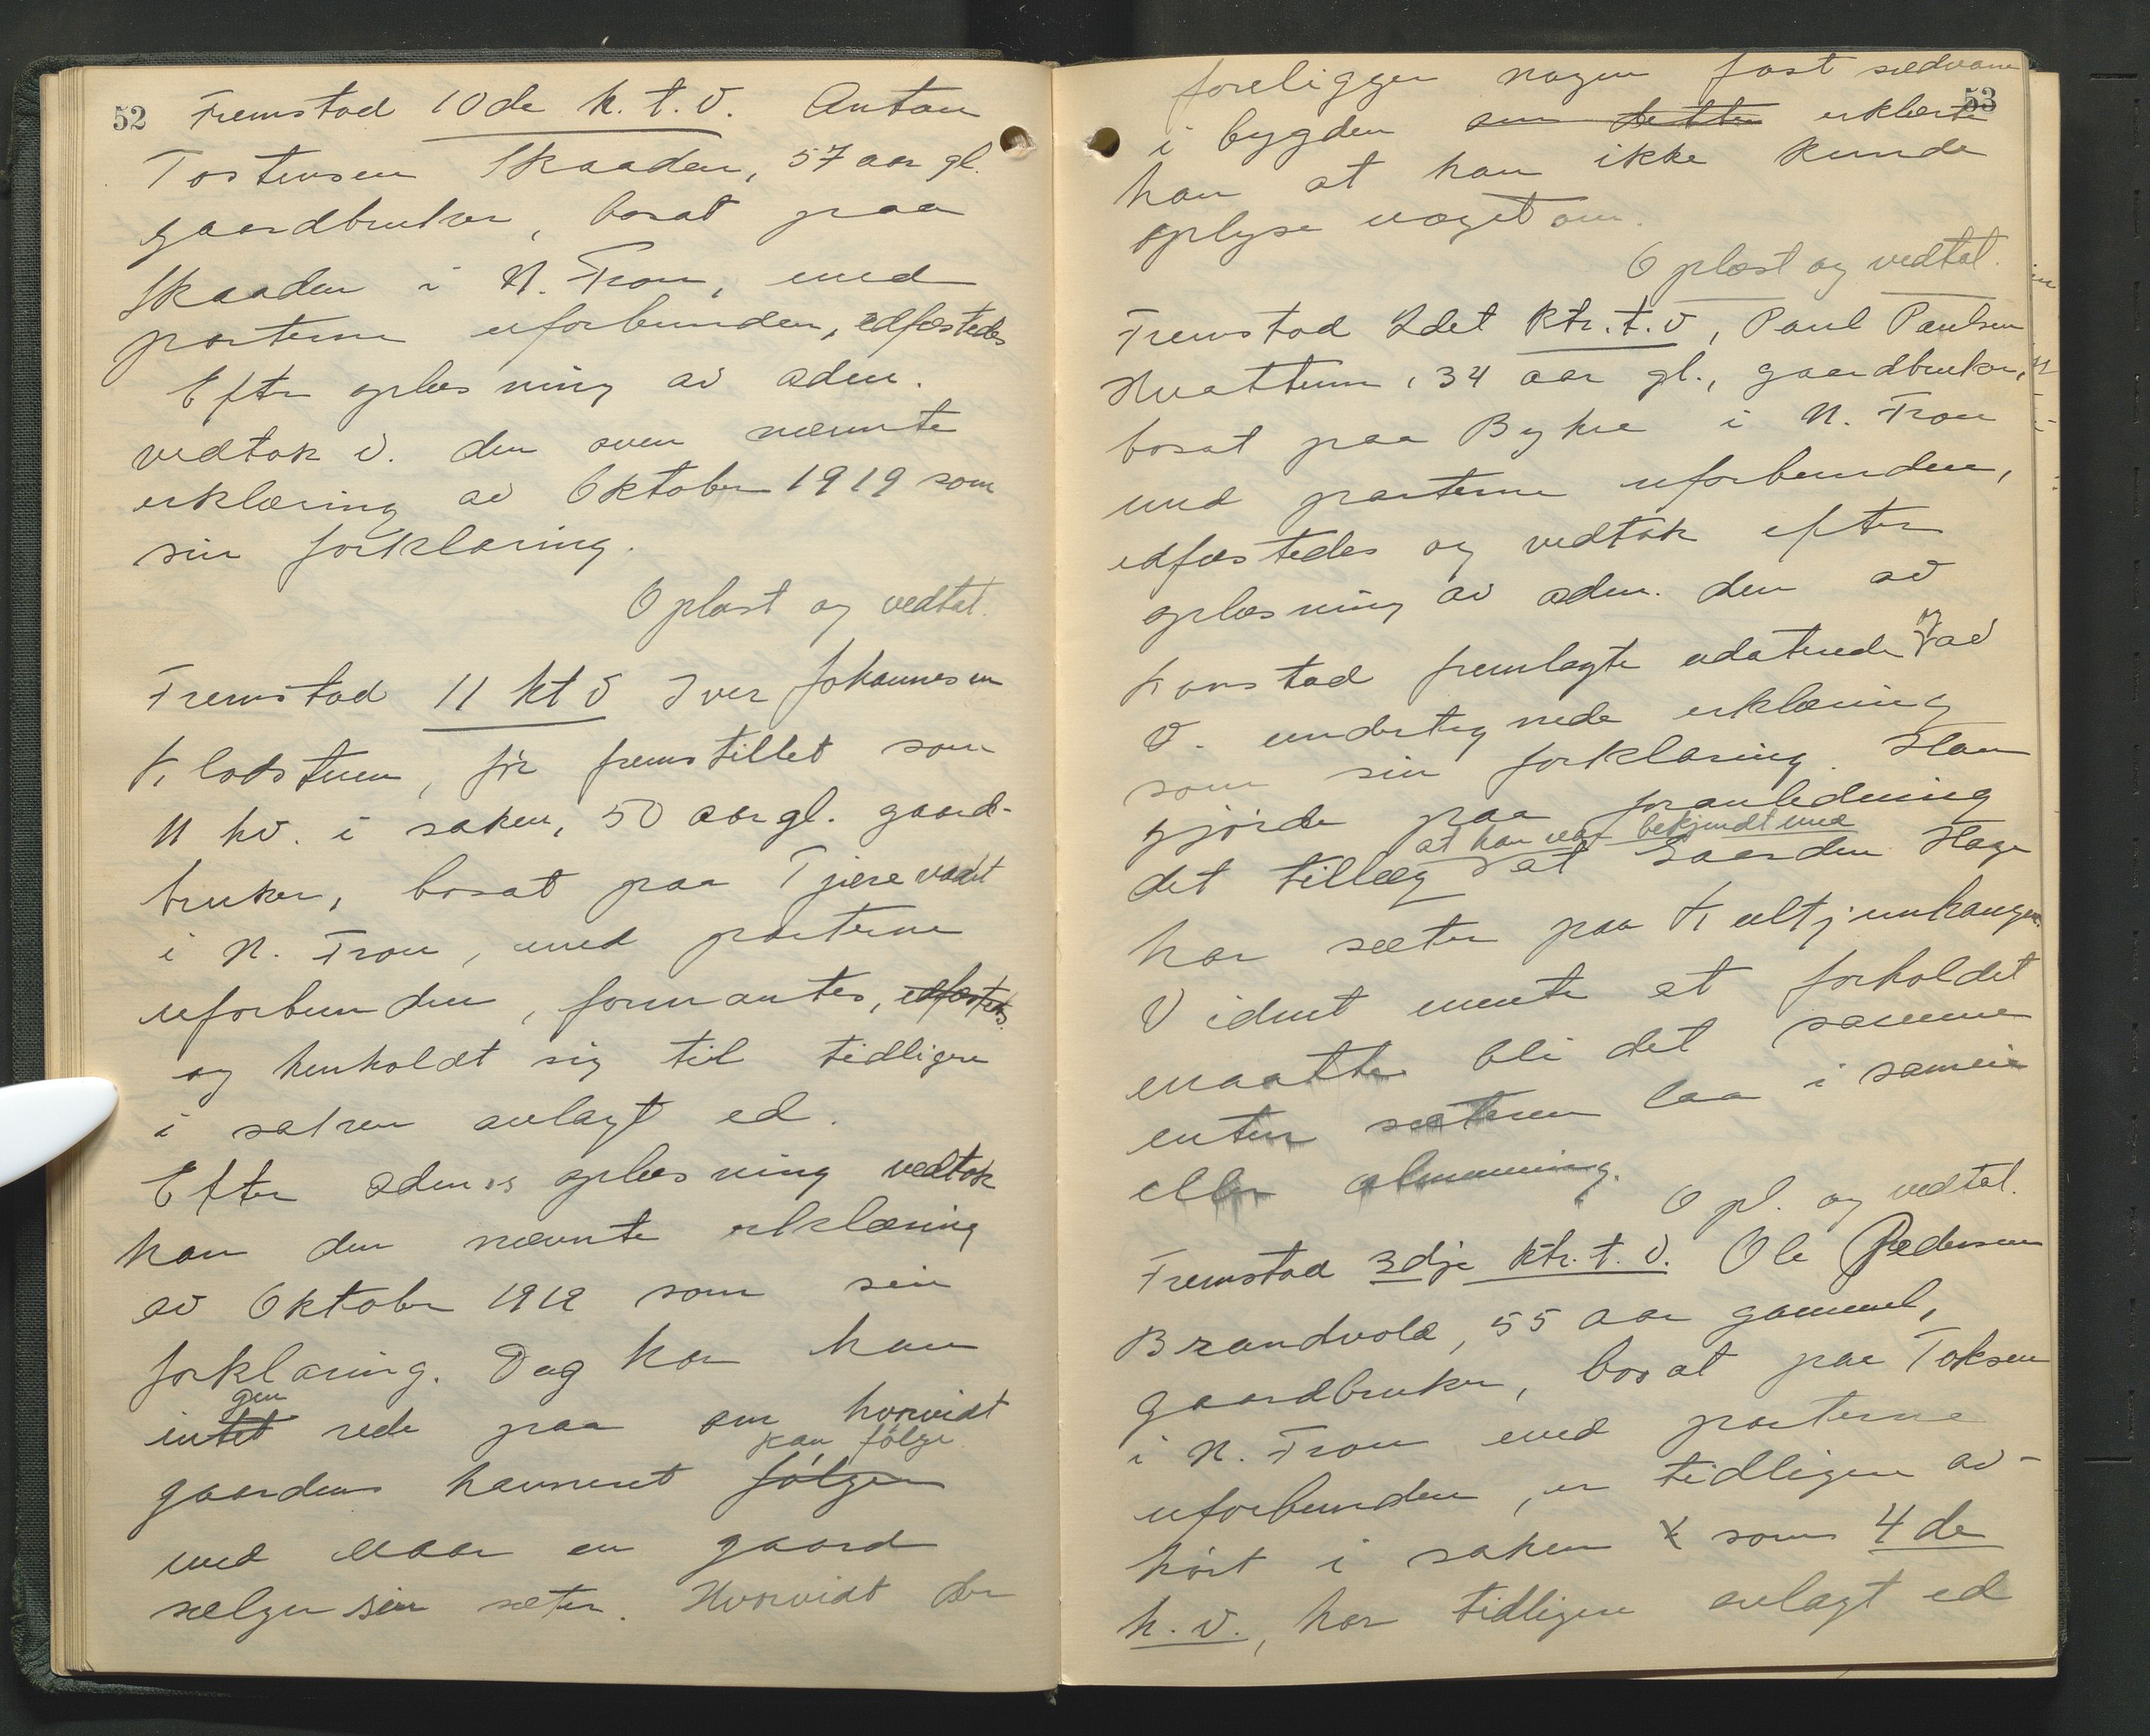 52
Fremstod 10de k. t. V. Anton
Tostensen Skaaden, 57 aar gl.
gaardbruker, bosat paa
Skaaden i N. Fron, med
parterne uforbunden, edfæstedes
Efter oplæsning av aden.
vedtok v. den oven nævnte
erklæring av Oktober 1919 som
sin forklaring.
Oplæst og vedtat.
Fremstod 11 kt V Iver Johannesen
Klodstuen, før fremstillet som
11 hv. i saken, 50 aar gl. gaard-
bruker, bosat paa Tjære
i N. Fron, med parterne
uforbunden, formantes, edfæstedes
og henholdt sig til tidligere
i saken avlagt ed.
Efter adens oplæsning vedtok
han den nævnte erklæring
av Oktober 1919 som sin
forklaring. Dog har han
gen
intet rede paa om hvorvidt
kan følge
gaardens havneret følger
med naar en gaard
sælger sin sæter. Hvorvidt der
53
foreligger nogen fast sædvane
i bygden om dette erklærte
han at han ikke kunde
oplyse noget om.
Oplæst og vedtat.
Fremstod 2det ktr. t. V, Paul Paulsen
Hvattum, 34 aar gl., gaardbruker,
bosat paa Bykre i N. Fron
med parterne uforbunden,
edfæstedes og vedtok efter
oplæsning av aden. den av
og
Konstad fremlagte udaterede av
V. undertegnede erklæring
som sin forklaring. Han
gjørde paa foranledning
at han var bekjendt med
det tillæg at Gaarden Hage
har sæter paa
Vidnet mente at forholdet
maatte bli det samme
enten sæteren laa i sameie
eller almenning.
Opl. og vedtat.
Fremstod 3dje ktr. t. V. Ole Pedersen
Brandvold, 55 aar gammel,
gaardbruker, bosat paa Toksen
i N. Fron med parterne
uforbunden, er tidligere av-
hørt i saken som 4de
h. v., har tidligere avlagt ed